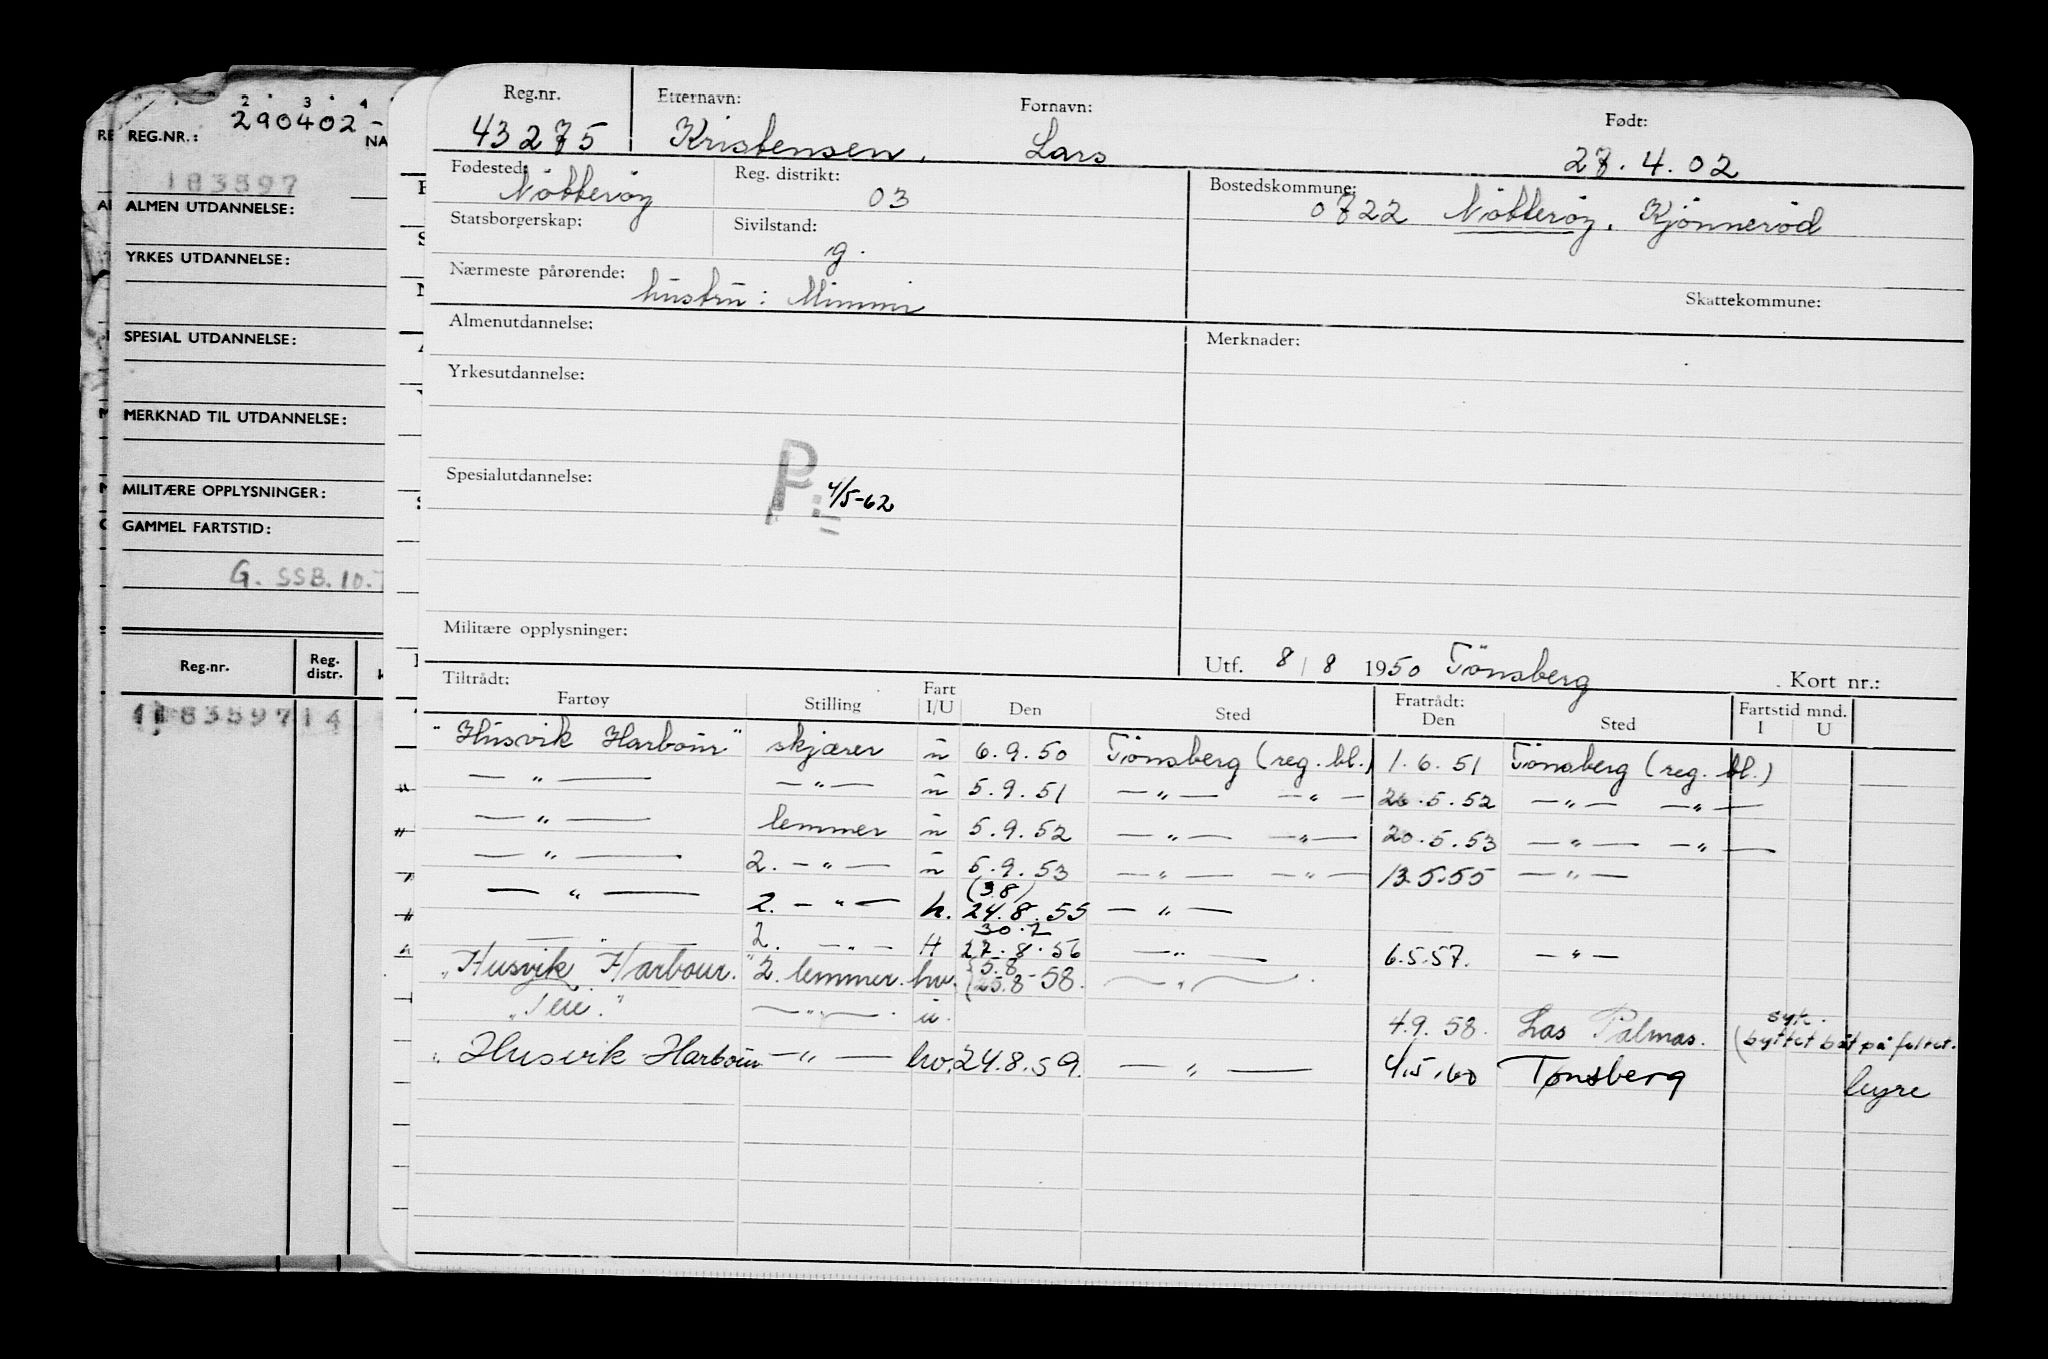 2 3 4
REG.NR.: 290402-
NA
183597
ALMEN UTDANNELSE:
YRKES UTDANNELSE:
SPESIAL UTDANNELSE:
MERKNAD TIL UTDANNELSE:
MILITÆRE OPPLYSNINGER:
GAMMEL FARTSTID:
G. SSB. 10.
Reg.nr. Reg. distr.
183597 14
Reg.nr. Etternavn: Fornavn: Født:
43275 Kristensen, Lars 27.4.02
Fødested: Reg. distrikt: Bostedskommune:
Nötteröy 03 0722 Nötteröy, Kjönneröd
Statsborgerskap: Sivilstand:
g.
Nærmeste pårørende: hustru: Mimmi
Skattekommune:
Almenutdannelse: Merknader:
Yrkesutdannelse:
Spesialutdannelse: P: 4/5-62
Militære opplysninger:
Utf. 8/8 1950 Tönsberg Kort nr.:
Tiltrådt: Fratrådt: Fartstid mnd.
Fartøy Stilling Fart I/U Den Sted Den Sted I U
"Husvik Harbour" skjærer u 6.9.50 Tönsberg (reg. bl.) 1.6.51 Tönsberg (reg. bl.)
— " — — " — u 5.9.51 — " — — " — 20.5.52 — " — — " —
— " — lemmer u 5.9.52 — " — — " — 20.5.53 — " — — " —
— " — 2. — " — u 5.9.53 — " — — " — 13.5.55 — " —
(3.8)
— " — 2. — " — h. 24.8.55 — " —
30.7
— " — 2. — " — H 27.8.56 — " — 6.5.57. — " —
"Husvik Harbour." 2. lemmer. hv. (5.8 25.8-58. — " —
"Teie." — " — u. 4.9.58. Las Palmas. syk. (byttet båt på feltet.
" Husvik Harbour — " — hv. 24.8.59. — " — 4.5.60 Tønsberg hyre